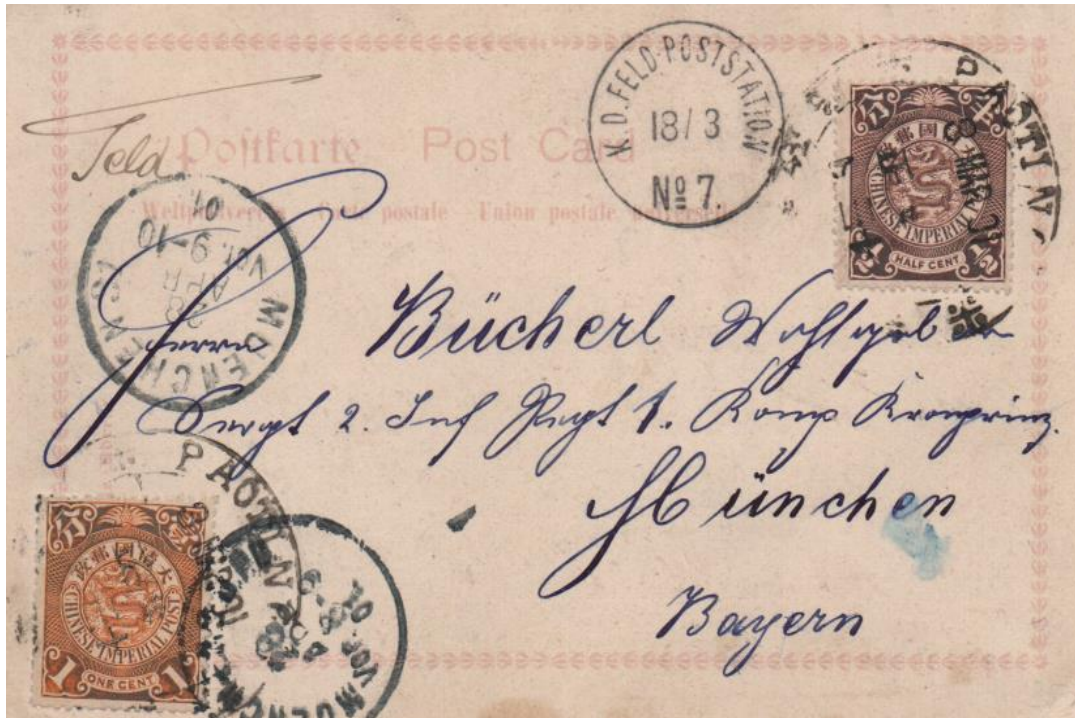 Feld Postkarte Post Card
Weltpostverein Carte postale Union postale universelle
K.D. FELD-POSTSTATION
18/3
№ 7
PAOTING
8 MAR 01
大清國郵政
CHINESE IMPERIAL POST
½ ½
HALF CENT
MUENCHEN
28
APR
Vor. 9-10
01
Herrn Bücherl Wohlgeboren
Sergt 2. Inf Regt 1. Komp Kronprinz.
München
Bayern
PAOTING
大清國郵政
CHINESE IMPERIAL POST
1 1
ONE CENT
MUENCHEN
VOR.
01